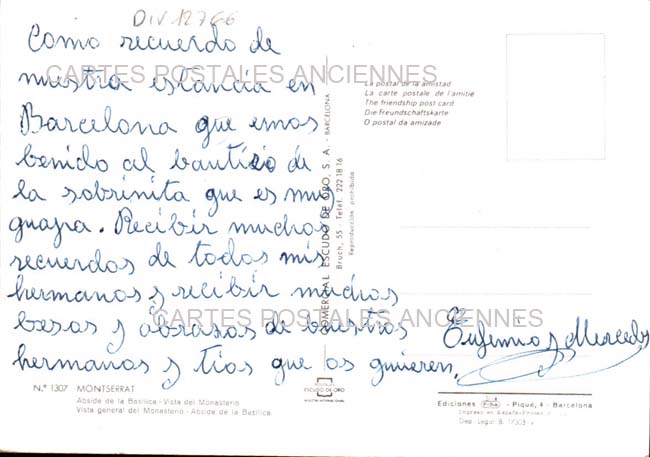 DIV 12766
Como recuerdo de
nuestra estancia en
Barcelona que emos
benido al bautizo de
la sobrinita que es muy
guapa. Recibir muchos
recuerdos de todos mis
hermanos y recibir muchos
besas y abrasos de buestros
hermanos y tios que os quieren.
Eufemio y Mercedes
CARTES POSTALES ANCIENNES
CARTES POSTALES ANCIENNES
La postal de la amistad
La carte postale de l'amitié
The friendship post card
Die freundschaftskarte
O postal da amizade
COMERCIAL ESCUDO DE ORO, S. A. - BARCELONA
Bruch, 55 - Teléf. 222 18 16
Reproducción prohibida
N.º 1307 MONTSERRAT
Abside de la Basílica - Vista del Monasterio
Vista general del Monasterio - Abside de la Basílica.
ESCUDO DE ORO
Ediciones FISA - Piqué, 4 - Barcelona
Impreso en España
Dep. Legal B. 17303